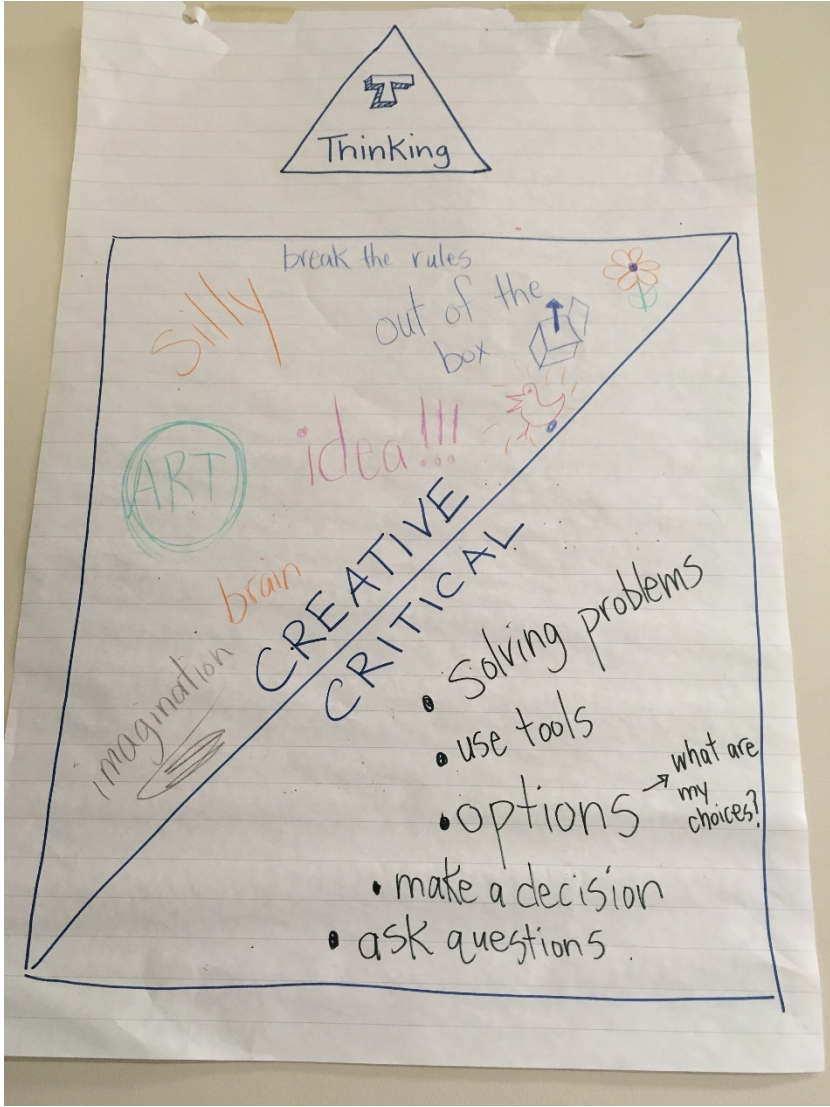 T
Thinking
break the rules
silly
out of the
box
idea!!!
ART
brain
imagination
CREATIVE
CRITICAL
• solving problems
• use tools
• options → what are
my
choices?
• make a decision
• ask questions.